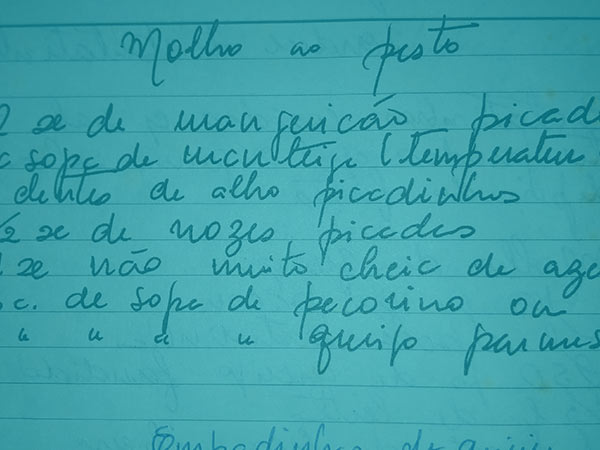 Molho ao pesto
2 xc de manjericão picad
sopa de manteiga (temperatur
dentes de alho picadinhos
1/2 xc de nozes picadas
xc não muito cheia de aze
c. de sopa de pecorino ou
" " " " queijo parmes
Empadinhas de queij